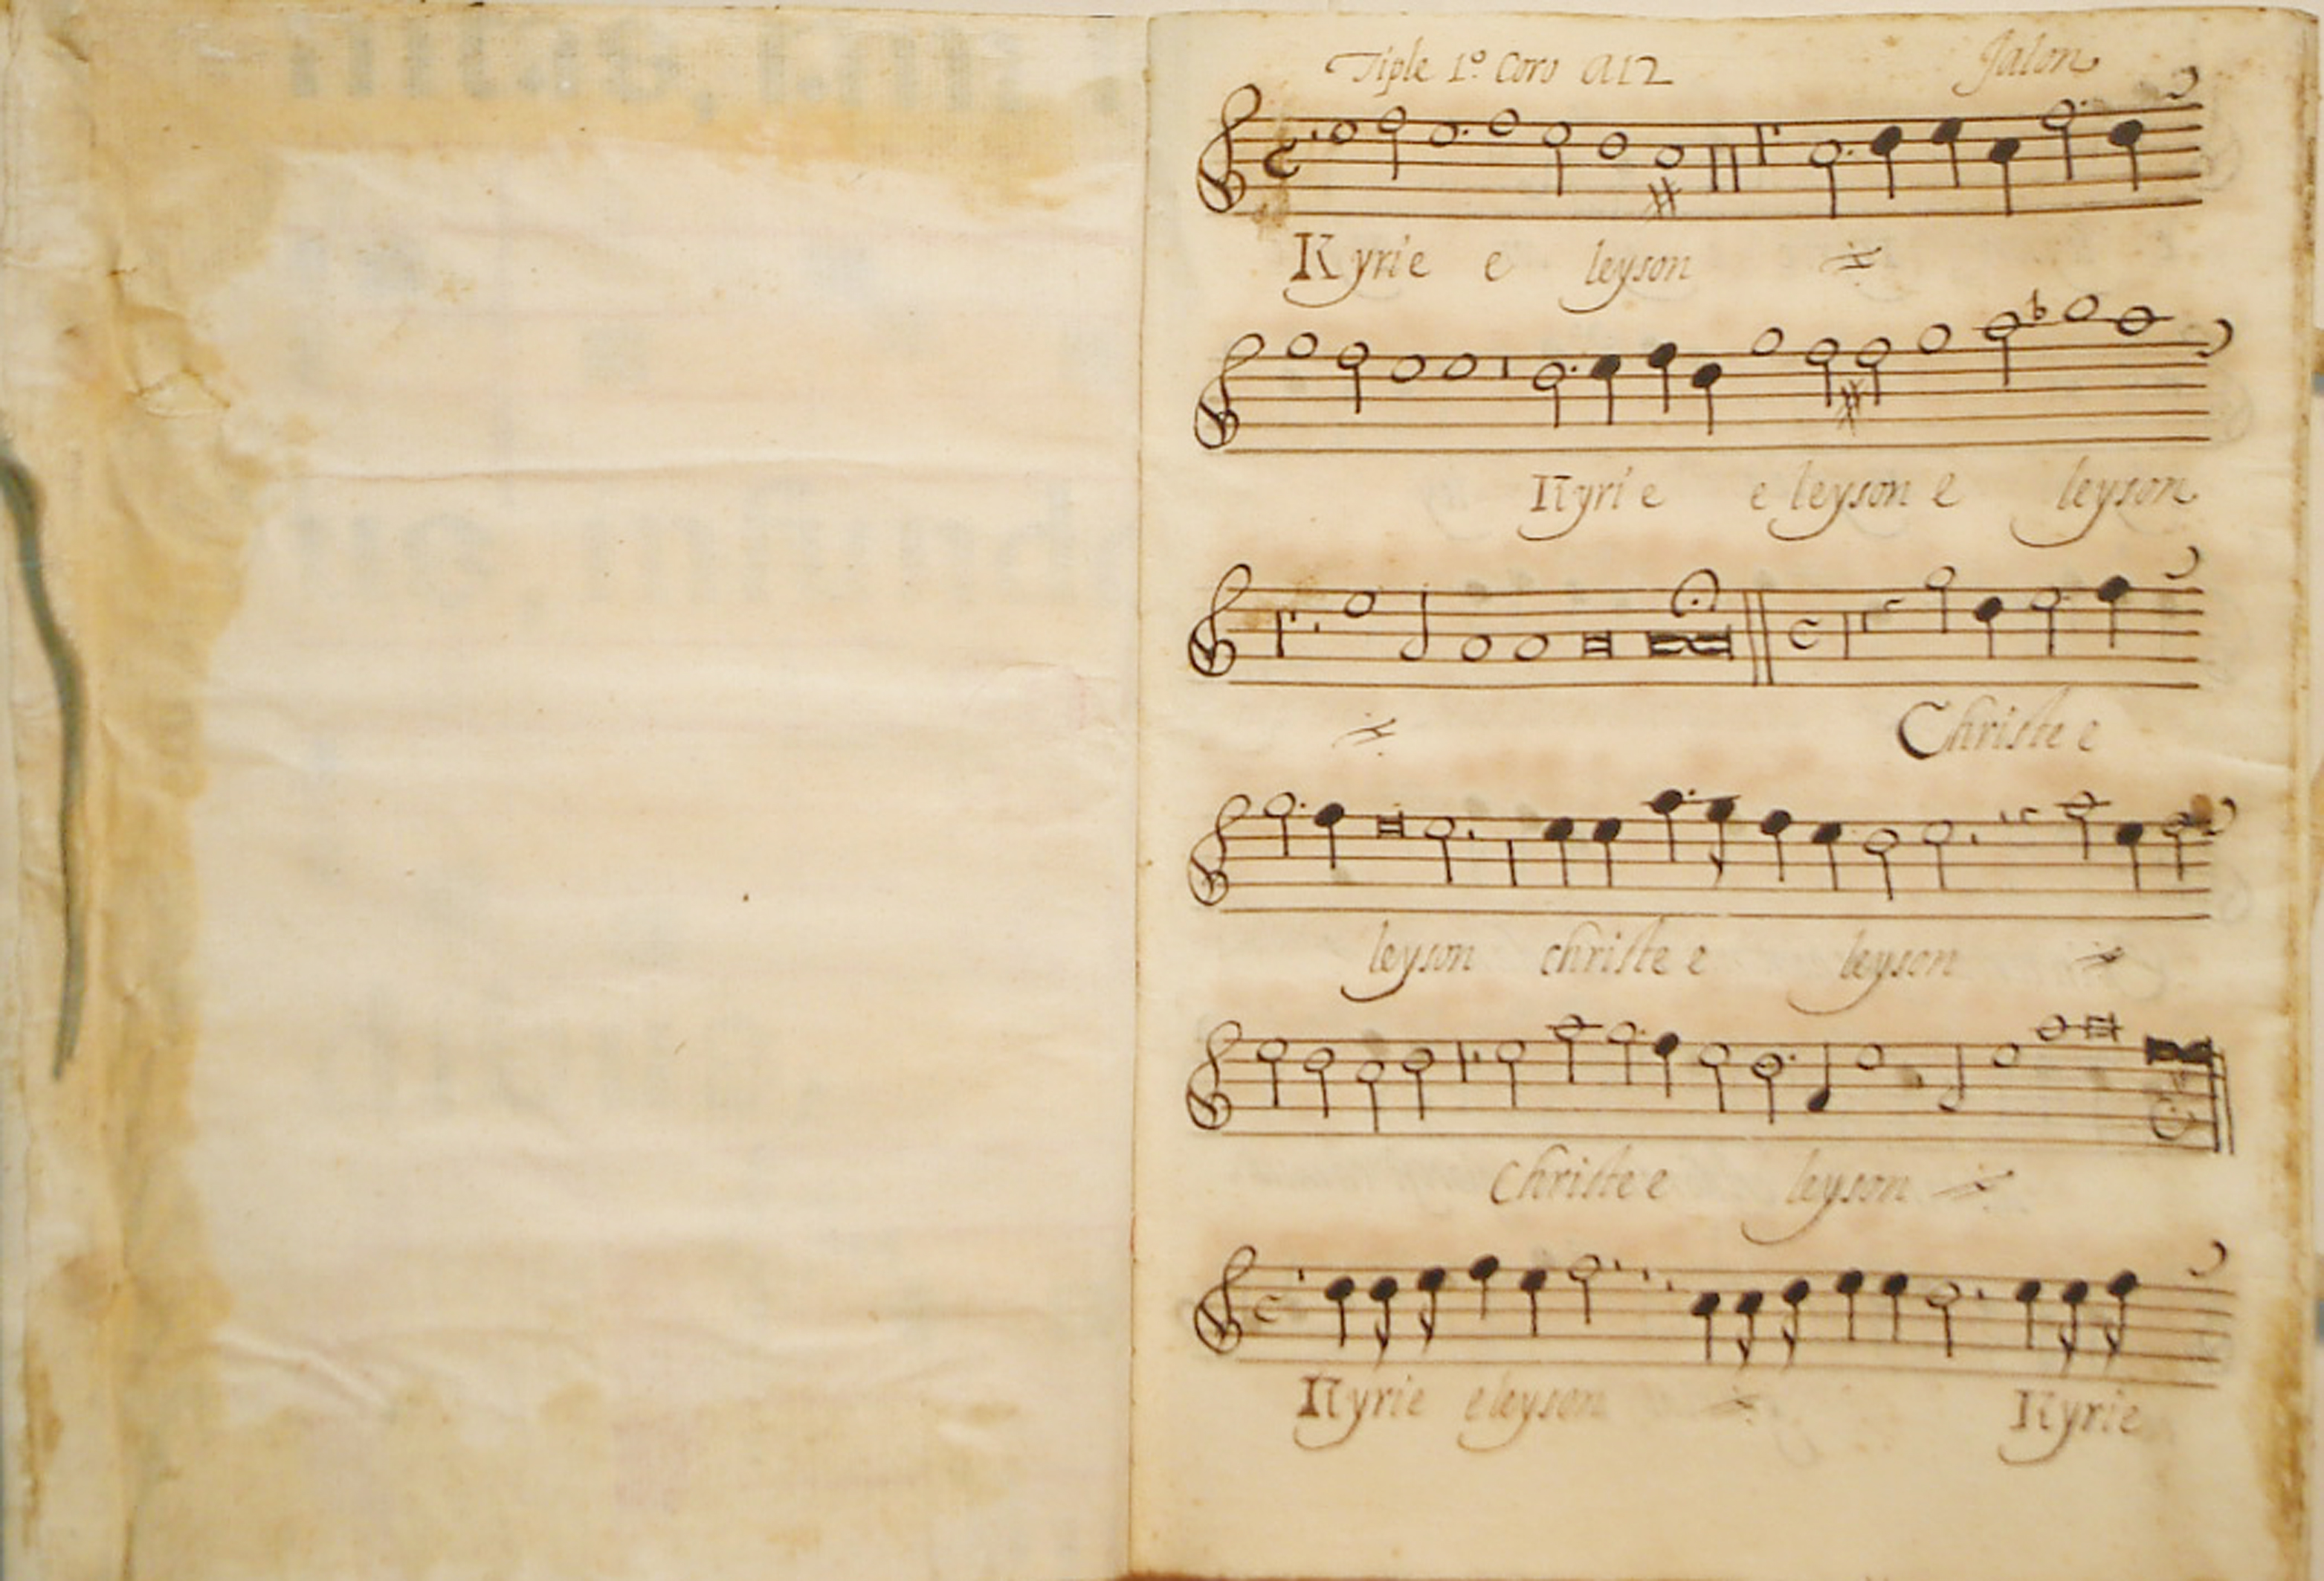 Tiple 1º Coro A12 Jalon
Kyrie e leyson
Kyrie e leyson e leyson
Christe e
leyson christe e leyson
Christe e leyson
Kyrie eleyson Kyrie